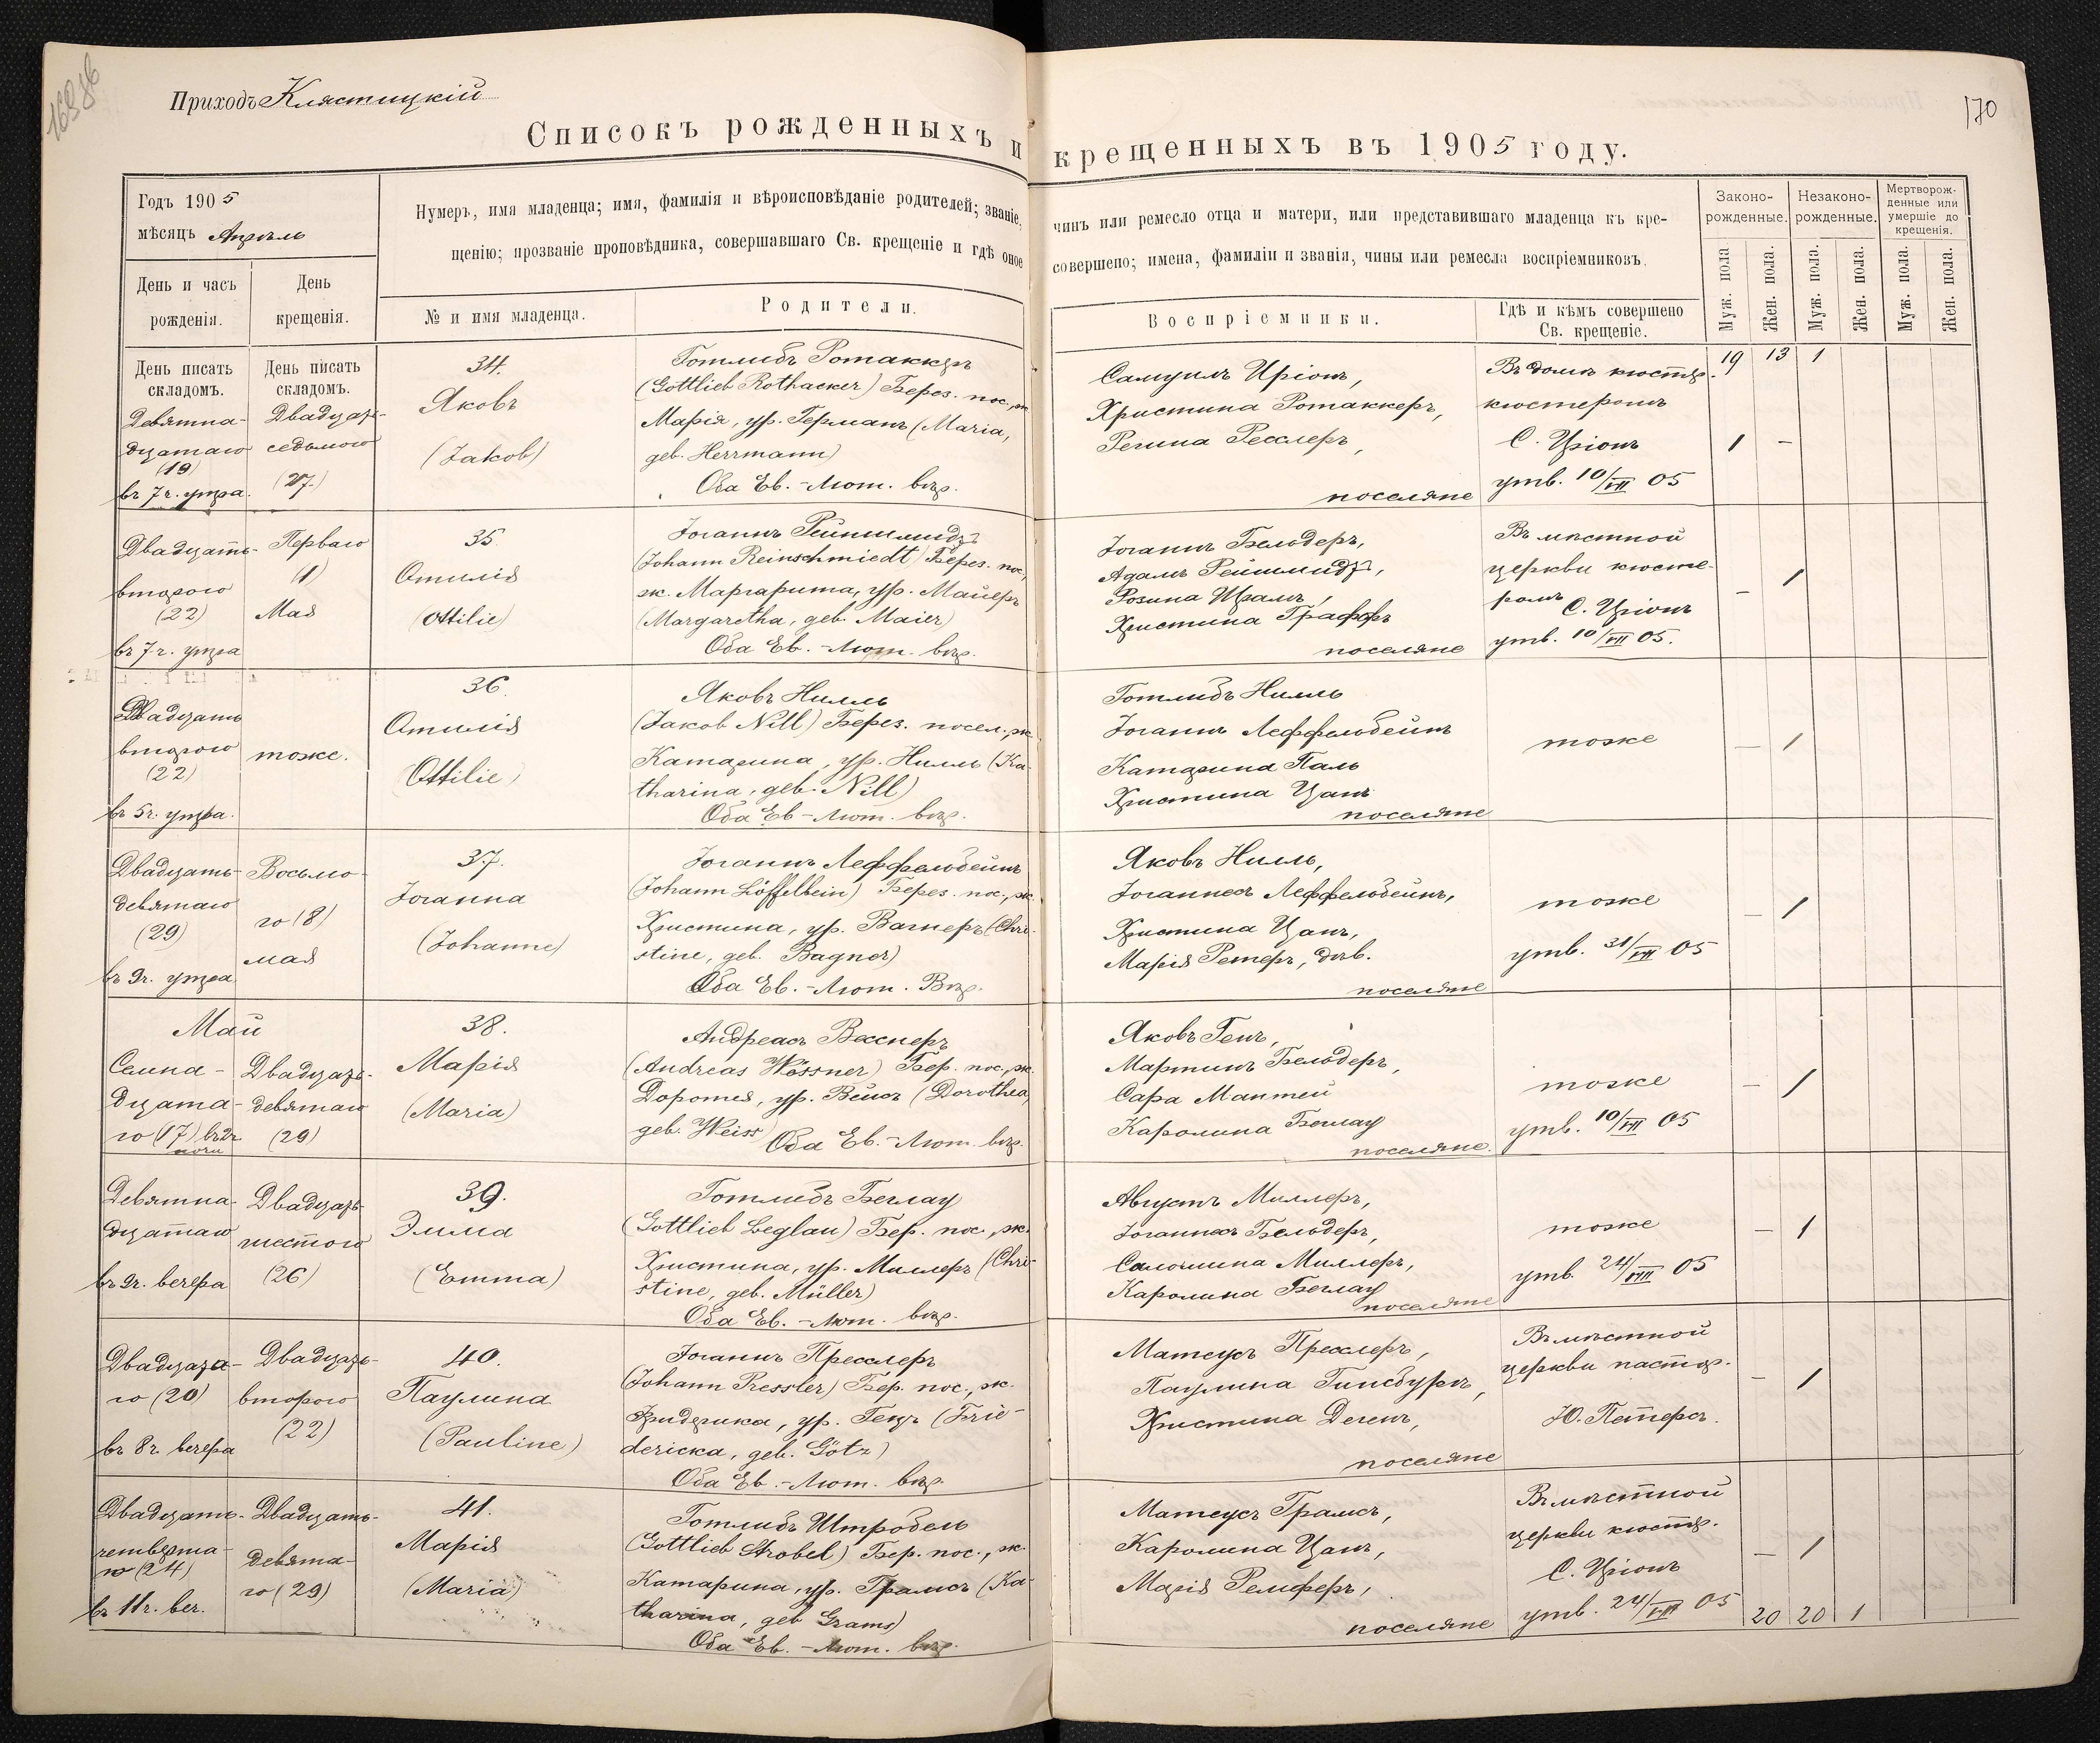 Приходъ Клястицкій
170
Списокъ рожденныхъ и крещенныхъ въ 1905 году.
Годъ 1905
мѣсяцъ Апрѣль
День и часъ рожденія.
День крещенія.
Нумеръ, имя младенца; имя, фамилія и вѣроисповѣданіе родителей; званіе, чинъ или ремесло отца и матери, или представившаго младенца къ кре-
щенію; прозваніе проповѣдника, совершавшаго Св. крещеніе и гдѣ оное совершено; имена, фамиліи и званія, чины или ремесла воспріемниковъ.
№ и имя младенца.
Родители.
Воспріемники.
Гдѣ и кѣмъ совершено
Св. крещеніе.
Законо-
рожденные.
Незаконо-
рожденные.
Мертворож-
денные или
умершіе до
крещенія.
Муж. пола
Жен. пола.
Муж. пола.
Жен. пола.
Муж. пола.
Жен. пола.
День писать
складомъ.
День писать
складомъ.
19 13 1
Девятна-
дцатаго
(19)
въ 7 ч. утра.
Двадцать-
седьмого
(27.)
34.
Яковъ
(Jakob)
Готлибъ Ротаккеръ
(Gottlieb Rothacker) Берез. пос., ж
Марія, ур. Германъ (Maria,
geb. Herrmann)
Оба Ев.-Лют. вѣр.
Самуилъ Цріонъ,
Христина Ротаккеръ,
Регина Ресслеръ,
поселяне
Въ домѣ кюстер.
кюстеромъ
С. Цріонъ
утв. 10/VIII 05
1 –
Двадцать-
второго
(22)
въ 7 ч. утра
Перваго
(1)
Мая
35.
Отилія
(Ottilie)
Іоганнъ Рейншмидъ
(Johann Reinschmiedt) Берез. пос,
ж. Маргарита, ур. Майеръ
(Margaretha, geb. Maier)
Оба Ев.-Лют. вѣр.
Іоганнъ Бельдеръ,
Адамъ Рейшмидъ,
Розина Црамъ,
Христина Граффъ
поселяне
Въ мѣстной
церкви кюсте-
ромъ С. Цріонъ
утв. 10/VIII 05.
– 1
Двадцать
второго
(22)
въ 5 ч. утра.
тоже.
36.
Отилія
(Ottilie)
Яковъ Нилль
(Jakob Nill) Берез. посел., ж
Катарина, ур. Нилль (Ka-
tharina, geb. Nill)
Оба Ев-Лют. вѣр.
Готлибъ Нилль
Іоганнъ Леффельбейнъ
Катарина Паль
Христина Цанъ
поселяне
тоже
– 1
Двадцать-
девятаго
(29)
въ 9 ч. утра
Восьмо-
го (8)
мая
37.
Іоганна
(Johanne)
Іоганнъ Леффельбейнъ
(Johann Löffelbein) Берез. пос., ж.
Христина, ур. Вагнеръ (Chri-
stine, geb. Bagner)
Оба Ев.-Лют. Вѣр.
Яковъ Нилль,
Іоганнесъ Леффельбейнъ,
Христина Цанъ,
Марія Ретеръ, дѣв.
поселяне
тоже
утв. 31/VIII 05
– 1
Май
Семна-
дцата-
го (17) въ 2 ч
ночи
Двадцать-
девятаго
(29)
38.
Марія
(Maria)
Андреасъ Весснеръ
(Andreas Wössner) Бер. пос., ж.
Доротея, ур. Вейсъ (Dorothea,
geb. Weiss) Оба Ев.-Лют. вѣр.
Яковъ Генъ,
Мартинъ Бельдеръ,
Сара Мантей
Каролина Беглау
поселяне.
тоже
утв. 10/VIII 05
– 1
Девятна-
дцатаго
въ 9 ч. вечера
Двадцать-
шестого
(26)
39.
Эмма
(Emma)
Готлибъ Беглау
(Gottlieb Beglau) Бер. пос., ж.
Христина, ур. Миллеръ (Chri-
stine, geb. Müller)
Оба Ев.-Лют. вѣр.
Августъ Миллеръ,
Іоганнесъ Бельдеръ,
Саломина Миллеръ,
Каролина Беглау
поселяне
тоже
утв. 24/VIII 05
– 1
Двадцата-
го (20)
въ 8 ч. вечера
Двадцать-
второго
(22)
40.
Паулина
(Pauline)
Іоганнъ Пресслеръ
(Johann Pressler) Бер. пос., ж.
Фридерика, ур. Гецъ (Frie-
dericka, geb. Götz)
Оба Ев.-Лют. вѣр.
Матеусъ Пресслеръ,
Паулина Гинсбургъ,
Христина Дегенъ,
поселяне
Въ мѣстной
церкви пастор.
Ю. Петерсъ.
– 1
Двадцать-
четверта-
го (24)
въ 11 ч. веч.
Двадцать-
девята-
го (29)
41.
Марія
(Maria)
Готлибъ Штробель
(Gottlieb Strobel) Бер. пос., ж.
Катарина, ур. Грамсъ (Ka-
tharina, geb Grams)
Оба Ев.-Лют. вѣр.
Матеусъ Грамсъ,
Каролина Цанъ,
Марія Ремферъ,
поселяне
Въ мѣстной
церкви кюстер.
С. Цріонъ
утв. 24/VIII 05
– 1
20 20 1